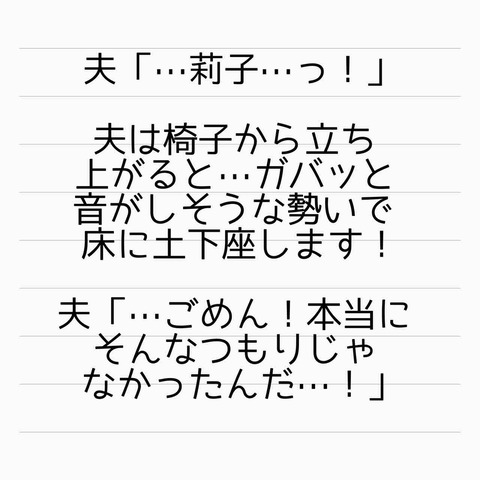 夫「…莉子…っ！」
夫は椅子から立ち
上がると…ガバッと
音がしそうな勢いで
床に土下座します！
夫「…ごめん！本当に
そんなつもりじゃ
なかったんだ…！」